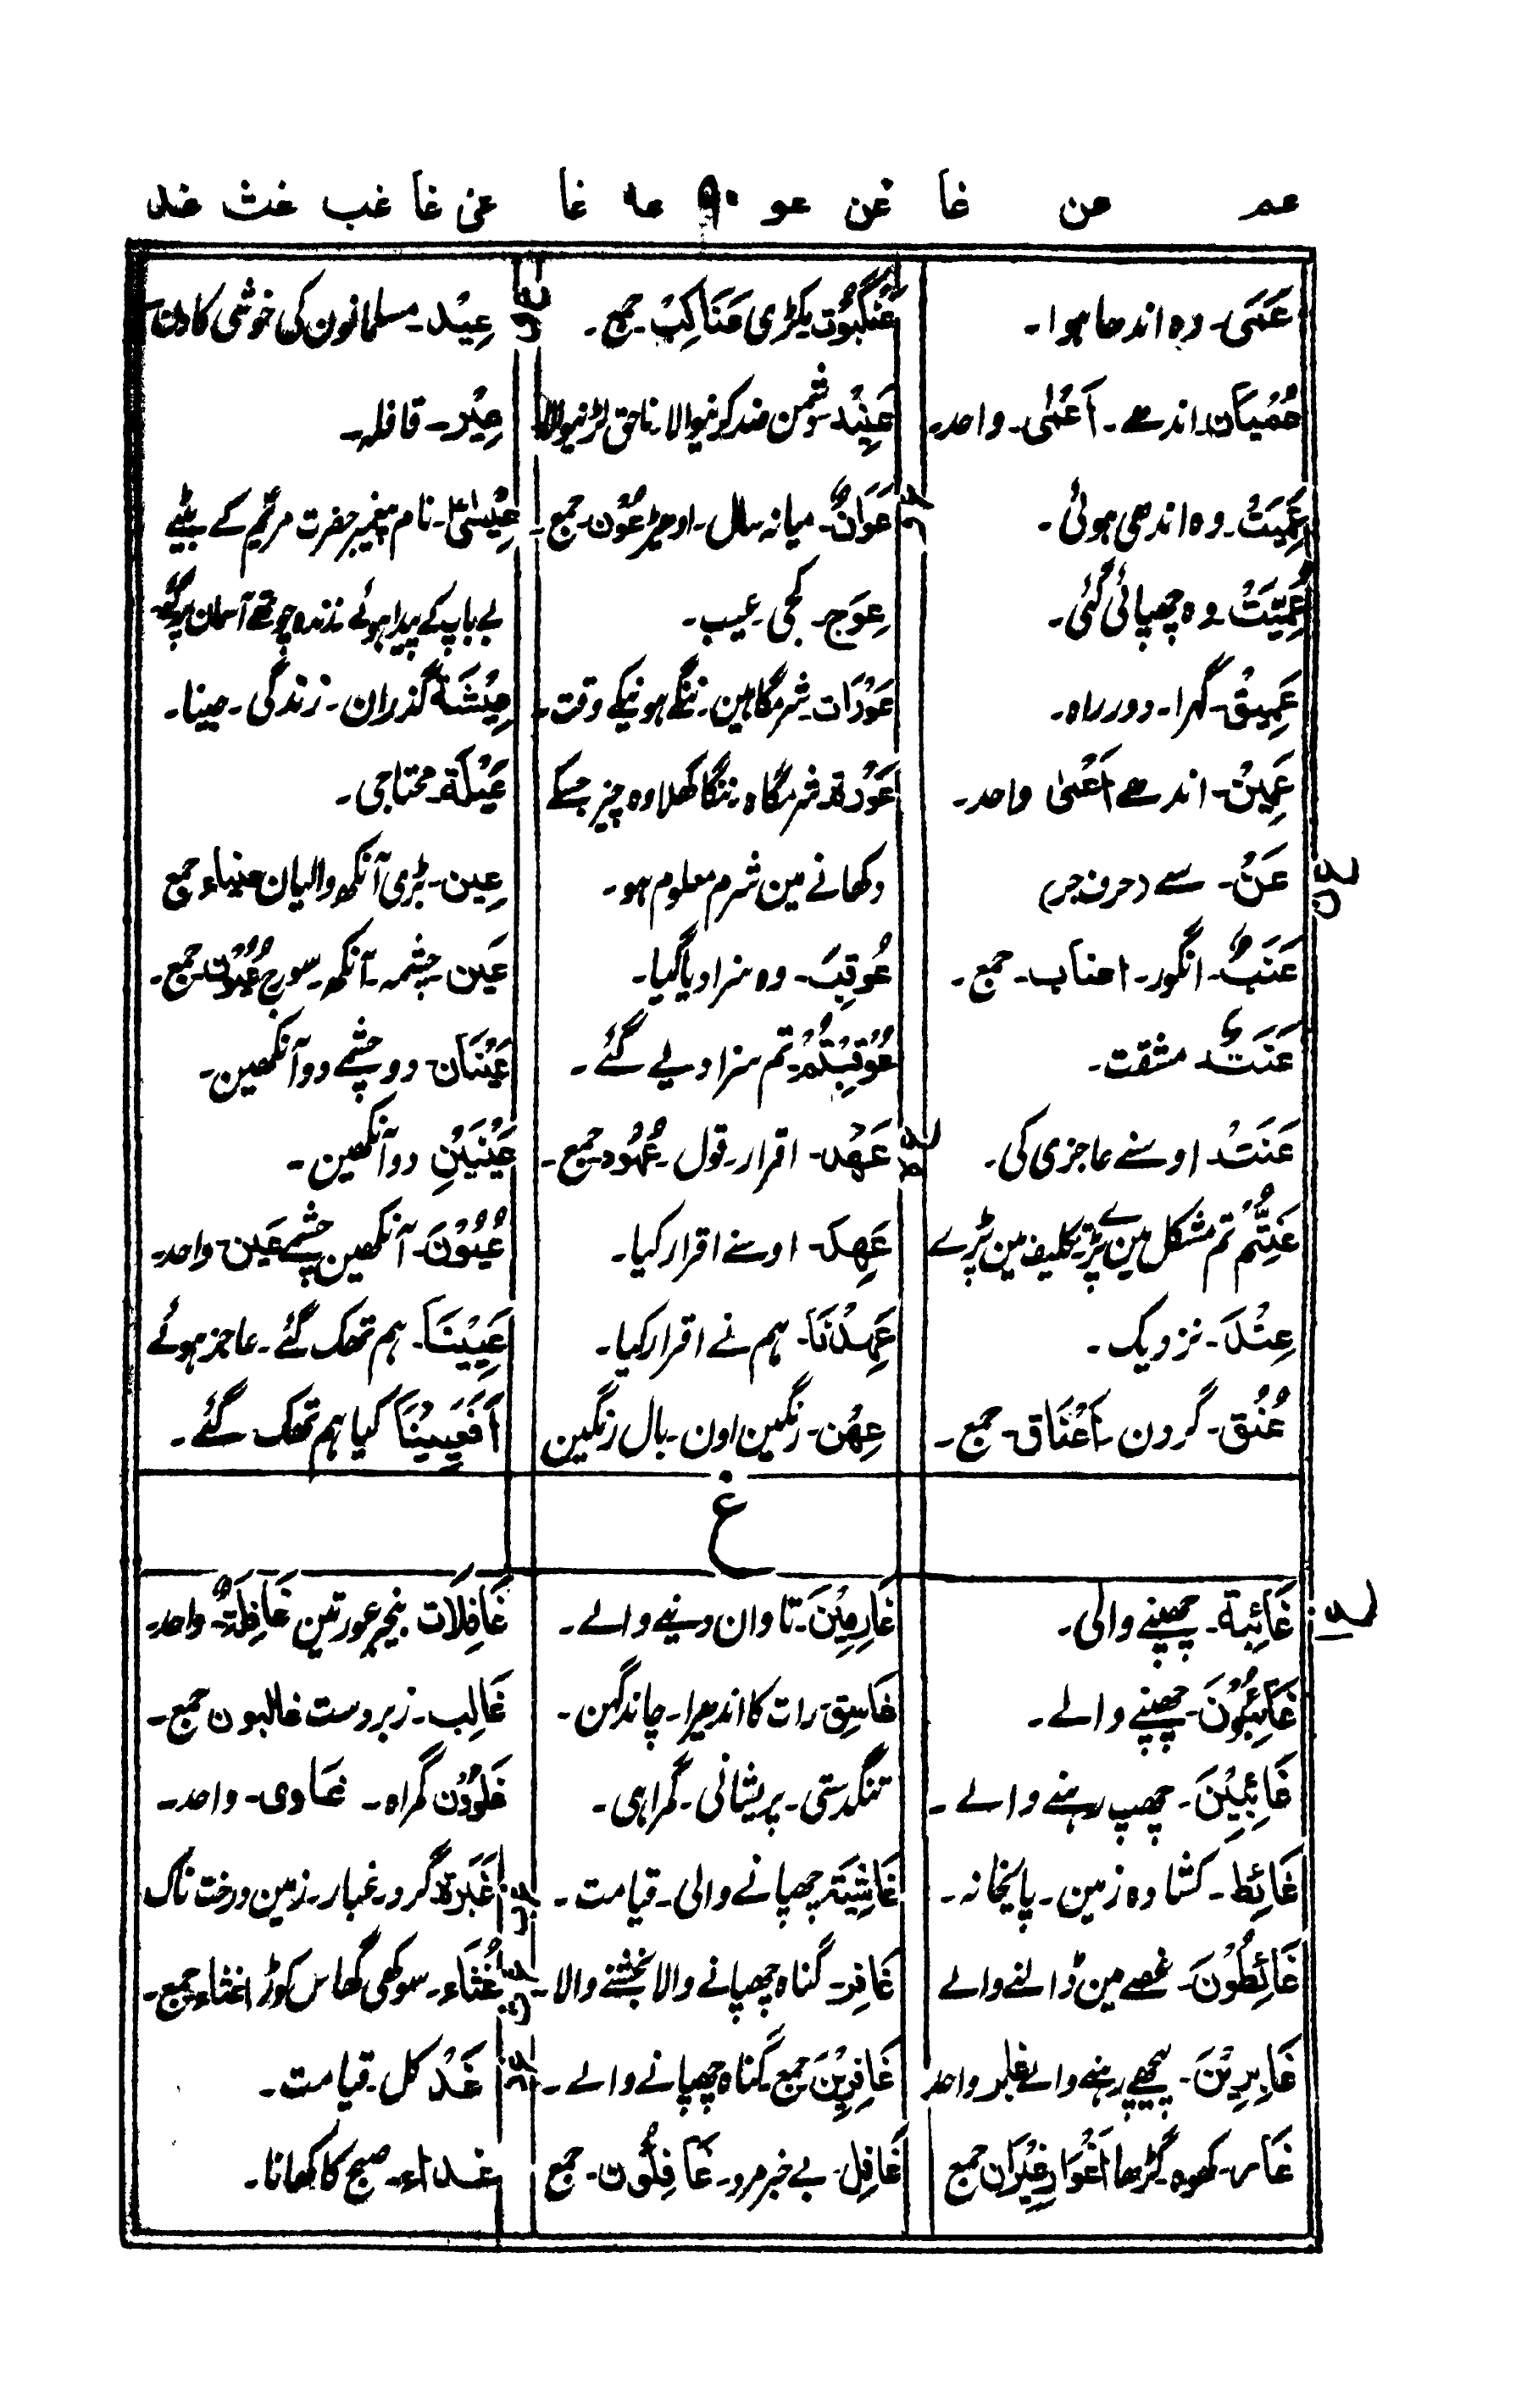 عم عن غا غن عو ۹۰ عه غا عی غا غب غث غد
عَمَى۔ وہ اندھا ہوا۔
عُمْيَان۔ اندھے۔ اَعْمٰی۔ واحد۔
عَمِيَتْ۔ وہ اندھی ہوئی۔
عُمِّيَتْ۔ وہ چھپائی گئی۔
عَمِيْق۔ گہرا۔ دور راہ۔
عَمِيْنَ۔ اندھے اَعْمٰی واحد۔
عَنْ۔ سے (حرف جر)
عن
عَنَبٌ۔ انگور۔ اعناب۔ جمع۔
عَنَتٌ۔ مشقت۔
عَنَتْ۔ اوسنے عاجزی کی۔
عَنِتُّمْ تم مشکل مین پڑے تکلیف مین پڑے
عِنْدَ۔ نزدیک۔
عُنُق۔ گردن۔ اَعْنَاق۔ جمع۔
عَنْكَبُوْت مکڑی عَنَاكِبْ۔ جمع۔
عَنِيْد۔ دشمن ضد کرنیوالا۔ ناحق لڑنیوالا
عو
عَوَانٌ۔ میانہ سال۔ ادھیڑ عُوْن۔ جمع۔
عِوَج۔ کجی۔ عیب۔
عَوْرَات۔ شرمگاہین۔ ننگے ہونیکے وقت۔
عَوْرَة۔ شرمگاہ۔ ننگا کھلا وہ چیز جسکے
دکھانے مین شرم معلوم ہو۔
عُوْقِبَ۔ وہ سزا دیا گیا۔
عُوْقِبْتُمْ۔ تم سزا دیے گئے۔
عه
عَهْد۔ اقرار۔ قول۔ عُهُوْد۔ جمع۔
عَهِدَ۔ اوسنے اقرار کیا۔
عَهِدْنَا۔ ہم نے اقرار کیا۔
عِهْن۔ رنگین اون۔ بال رنگین
عی
عِيْد۔ مسلمانون کی خوشی کا دن
عِيْر۔ قافلہ۔
عِيْسٰیؑ۔ نام پیغمبر حضرت مریم کے بیٹے
بے باپ کے پیدا ہوئے زندہ چوتھے آسمان پر گئے
عِيْشَة گذران۔ زندگی۔ جینا۔
عَيْلَة۔ محتاجی۔
عِين۔ بڑی آنکھ والیان عیناء جمع
عَين۔ چشمہ۔ آنکھ۔ سورج عُيُوْن۔ جمع۔
عَيْنَان۔ دو چشمے دو آنکھین۔
عَيْنَيْنِ دو آنکھین۔
عُيُوْنَ۔ آنکھین چشمے عَین۔ واحد۔
عَيِيْنَا۔ ہم تھک گئے۔ عاجز ہوئے
اَفَعَيِيْنَا کیا ہم تھک گئے۔
غ
غا
غَائِبة۔ چھپنے والی۔
غَائِبُوْنَ۔ چھپنے والے۔
غَائِبِيْنَ۔ چھپ رہنے والے۔
غَائِط۔ کشادہ زمین۔ پائخانہ۔
غَائِظُوْنَ۔ غصے مین ڈالنے والے
غَابِرِيْنَ۔ پیچھے رہنے والے غابر واحد
غَار۔ کھوہ گڑھا اَغْوَار غِيْرَان جمع
غَارِمِيْنَ۔ تاوان دینے والے۔
غَاسِق۔ رات کا اندھیرا۔ چاند گہن۔
تنگدستی۔ پریشانی۔ گمراہی۔
غَاشِيَة۔ چھپانے والی۔ قیامت۔
غَافِر۔ گناہ چھپانے والا بخشنے والا۔
غَافِرِيْنَ جمع۔ گناہ چھپانے والے۔
غَافِل۔ بے خبر مرد۔ غَافِلُوْن۔ جمع
غَافِلَات بیخبر عورتین غَافِلَةٌ۔ واحد۔
غَالِب۔ زبردست غالبون جمع۔
غَاوُوْن گمراہ۔ غاوی۔ واحد۔
غب
غَبَرَة۔ گرد۔ غبار۔ زمین درخت ناک
غث
غُثَاء۔ سوکھی گھاس کوڑا اغثاء جمع۔
غد
غَدْ کل۔ قیامت۔
غداء۔ صبح کا کھانا۔